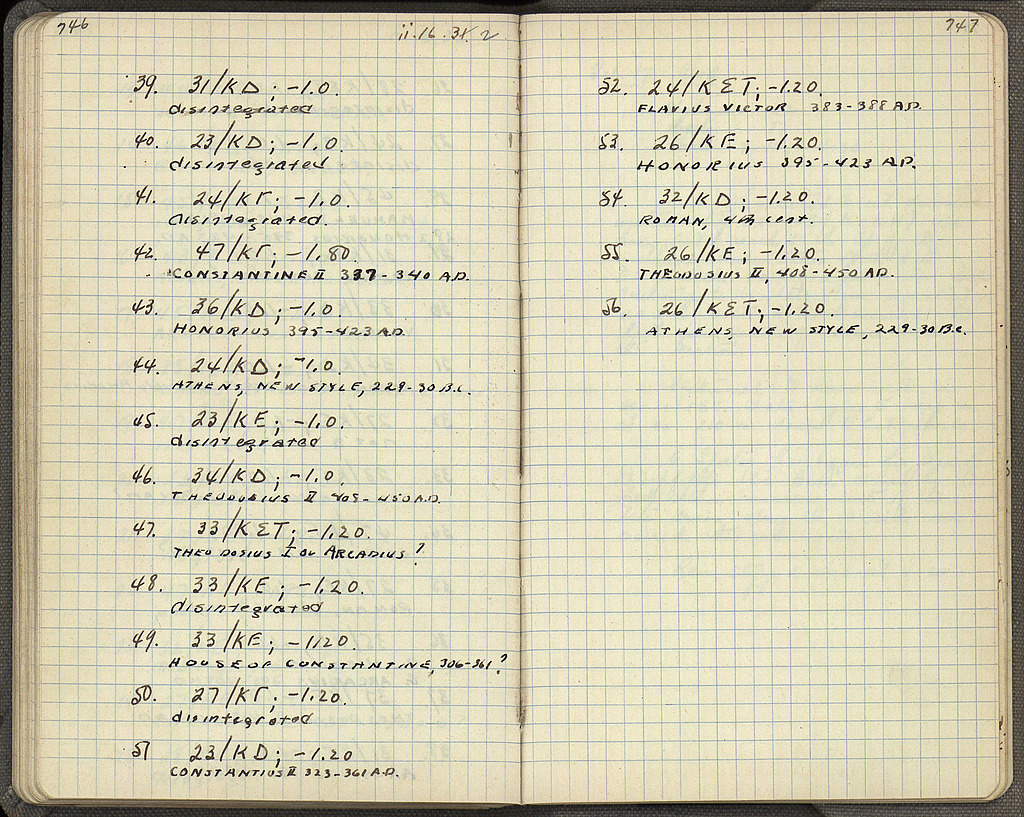 746
ii.16.34.2
39. 31/ΚD ; -1.0.
disintegrated
40. 23/ΚD ; -1.0.
disintegrated
41. 24/ΚΓ ; -1.0.
disintegrated.
42. 47/ΚΓ ; -1.80.
CONSTANTINE II 337-340 A.D.
43. 36/ΚD ; -1.0.
HONORIUS 395-423 A.D.
44. 24/ΚD ; -1.0.
ATHENS, NEW STYLE, 229-30 B.C.
45. 23/ΚE ; -1.0.
disintegrated
46. 34/ΚD ; -1.0.
THEODOSIUS II 408-450 A.D.
47. 33/ΚΣΤ ; -1.20.
THEODOSIUS I or ARCADIUS?
48. 33/ΚE ; -1.20.
disintegrated
49. 33/ΚE ; -1.20.
HOUSE OF CONSTANTINE, 306-361?
50. 27/ΚΓ ; -1.20.
disintegrated
51 23/ΚD ; -1.20
CONSTANTIUS II 323-361 A.D.
747
52. 24/ΚΣΤ ; -1.20.
FLAVIUS VICTOR 383-388 A.D.
53. 26/ΚE ; -1.20.
HONORIUS 395-423 A.D.
54. 32/ΚD ; -1.20.
ROMAN, 4th cent.
55. 26/ΚE ; -1.20.
THEODOSIUS II, 408-450 A.D.
56. 26/ΚΣΤ ; -1.20.
ATHENS, NEW STYLE, 229-30 B.C.